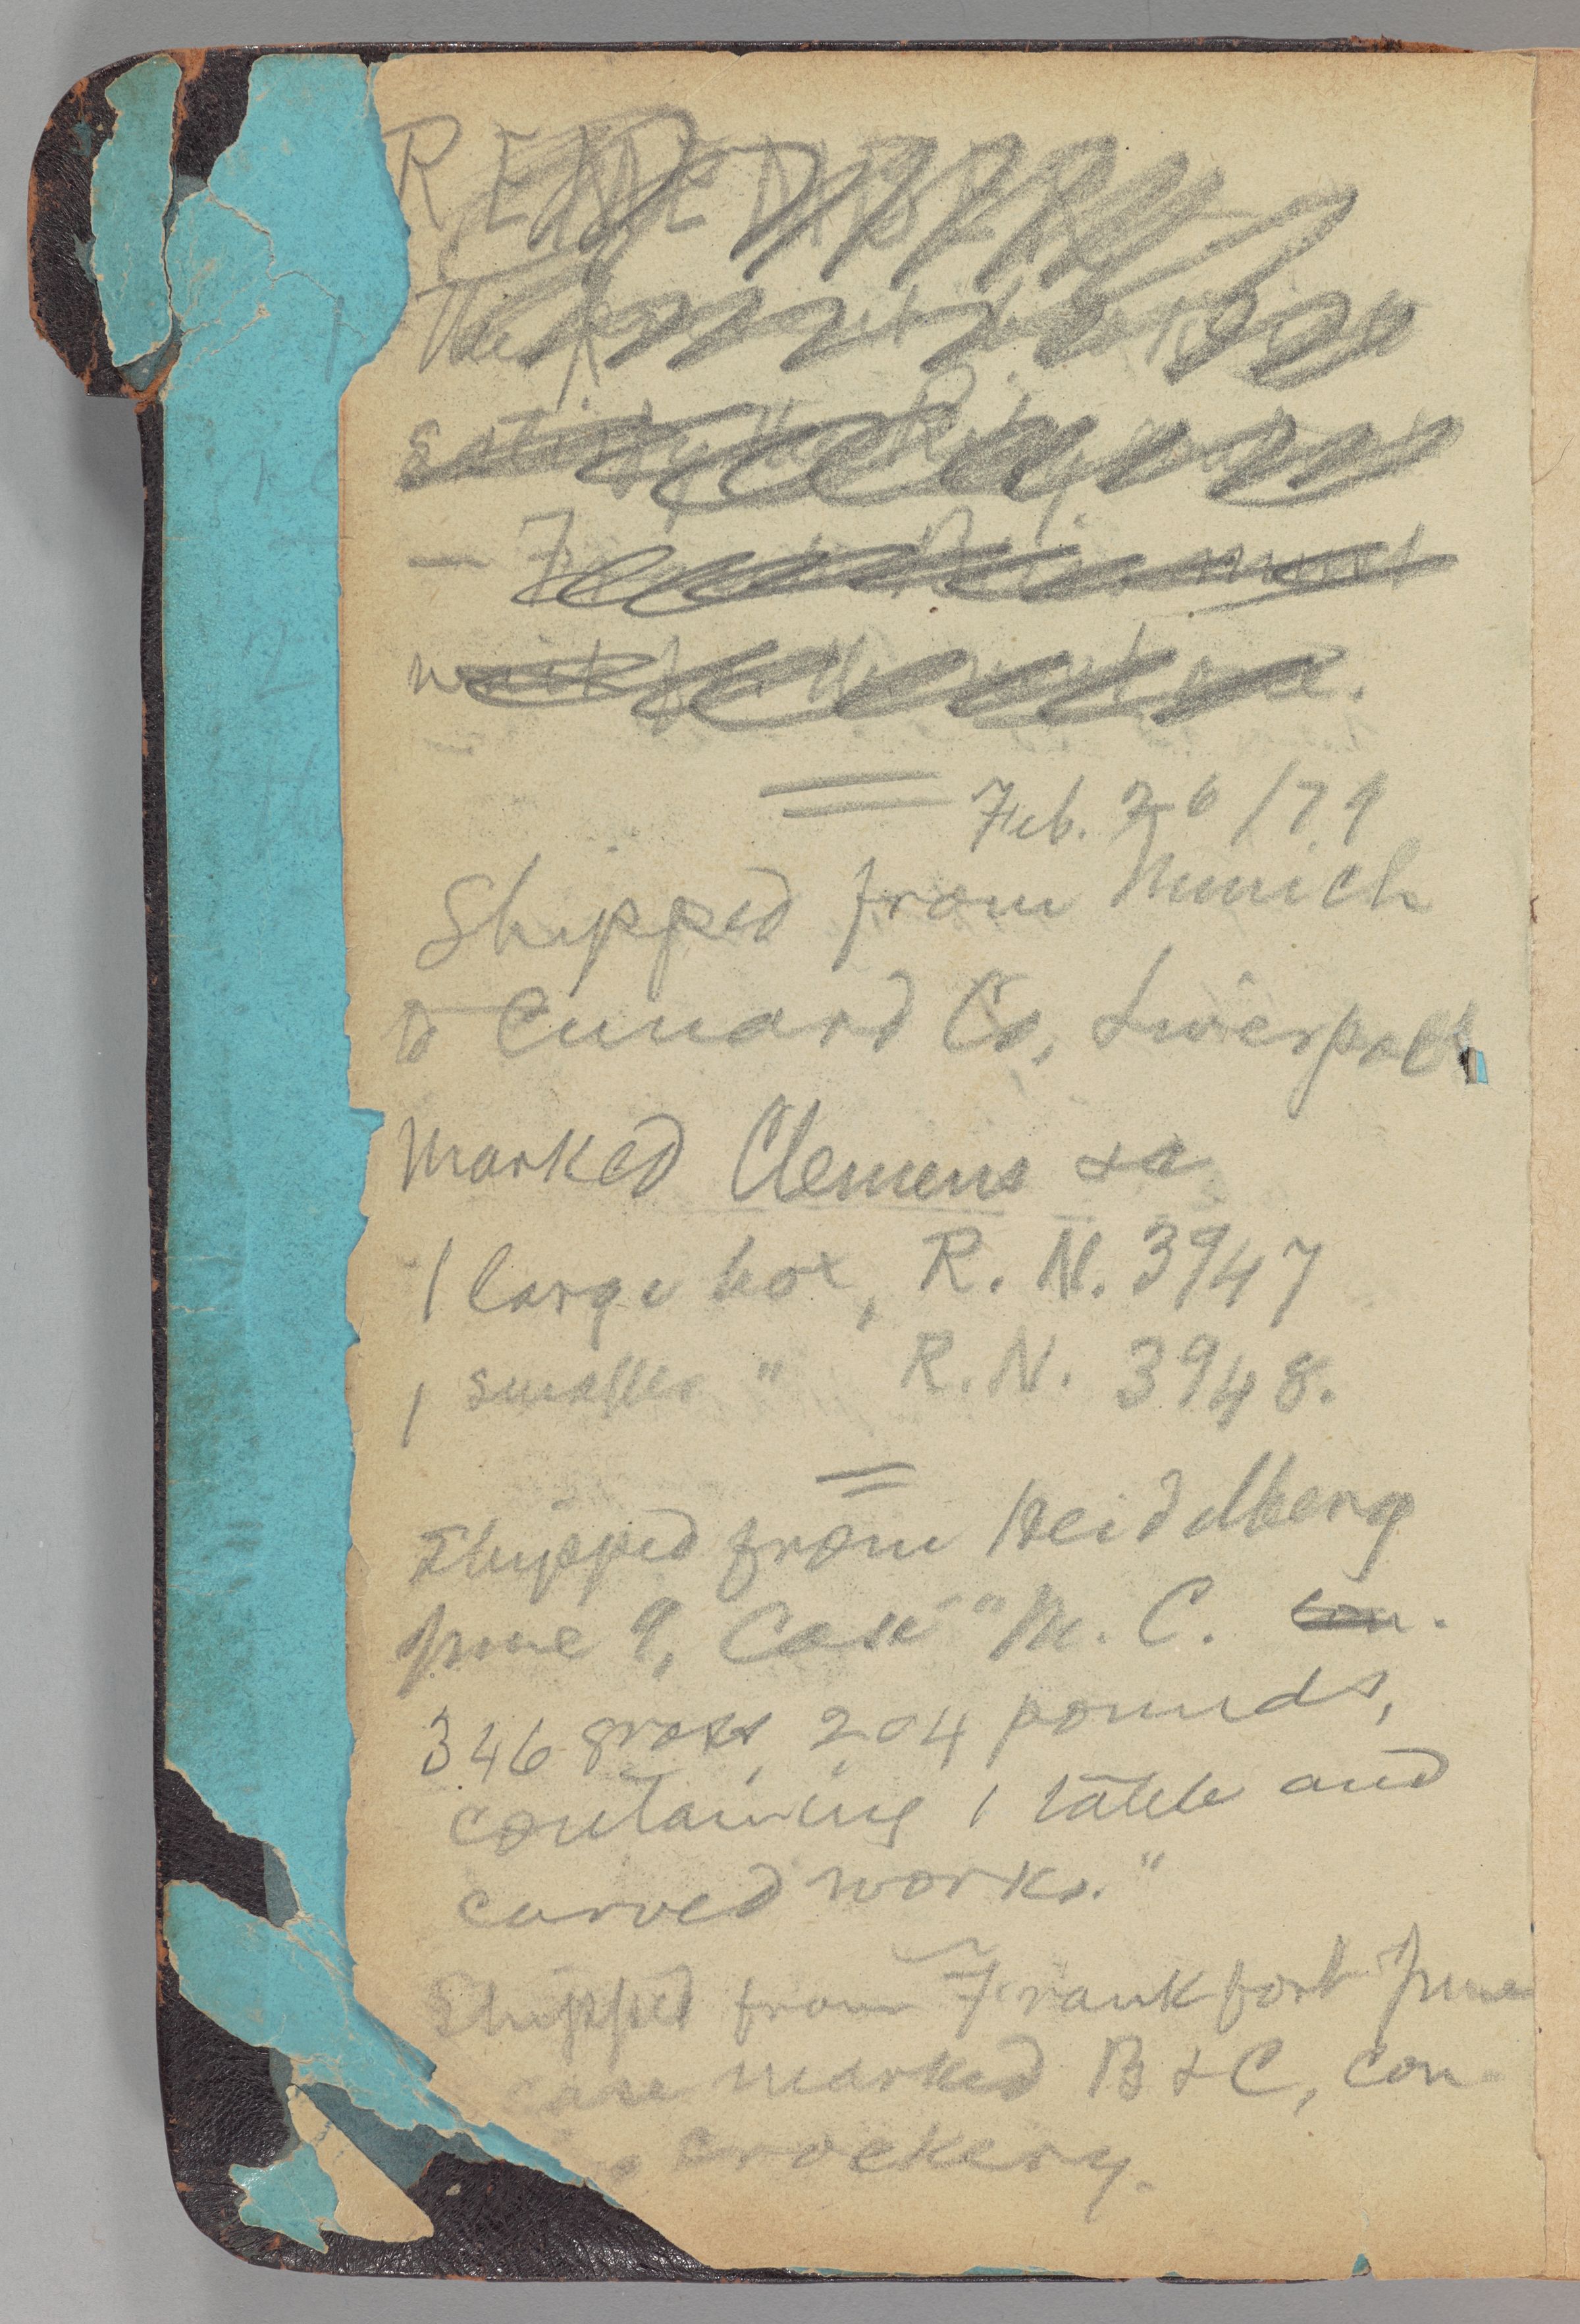 REMEMBER
The
satisfy the
— must
wait for the next one.
Feb. 26/79
Shipped from Munich
to Cunard Co, Liverpool,
marked Clemens &a
1 large box, R. N. 3947
1 smaller " R. N. 3948.
Shipped from Heidelberg
June 9, Case "M. C. con.
346 gross, 204 pounds,
containing 1 table and
carved works."
Shipped from Frankfort June
case marked B & C, con-
crockery.